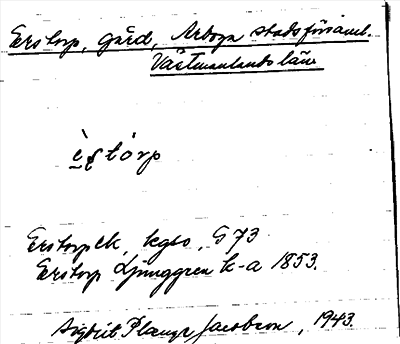 Eerstorp, gård, Arboga stadsförsaml.
Västmanlands län
èstòrp
Eerstorp ek, kgso, G 73
Eerstorp Ljunggren k-a 1853.
Sigfrit Plange Jacobson, 1943.